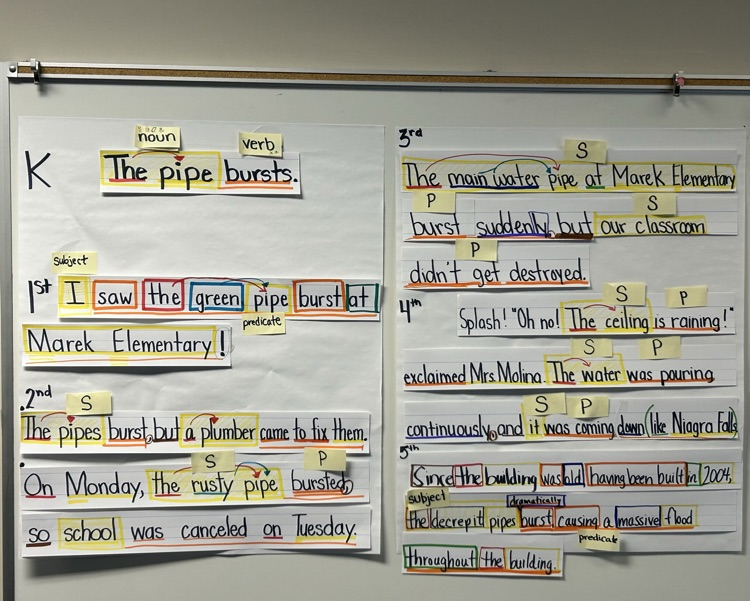 K
noun
verb
The pipe bursts.
subject
1st
I saw the green pipe burst at
predicate
Marek Elementary!
2nd
S
The pipes burst, but a plumber came to fix them.
S P
On Monday, the rusty pipe bursted,
so school was canceled on Tuesday.
3rd
S
The main water pipe at Marek Elementary
P S
burst suddenly, but our classroom
P
didn't get destroyed.
4th
S P
Splash! "Oh no! The ceiling is raining!"
S P
exclaimed Mrs. Molina. The water was pouring
S P
continuously, and it was coming down (like Niagra Falls
5th
Since the building was old, having been built in 2004,
subject
dramatically
the decrepit pipes burst causing a massive flood
predicate
throughout the building.